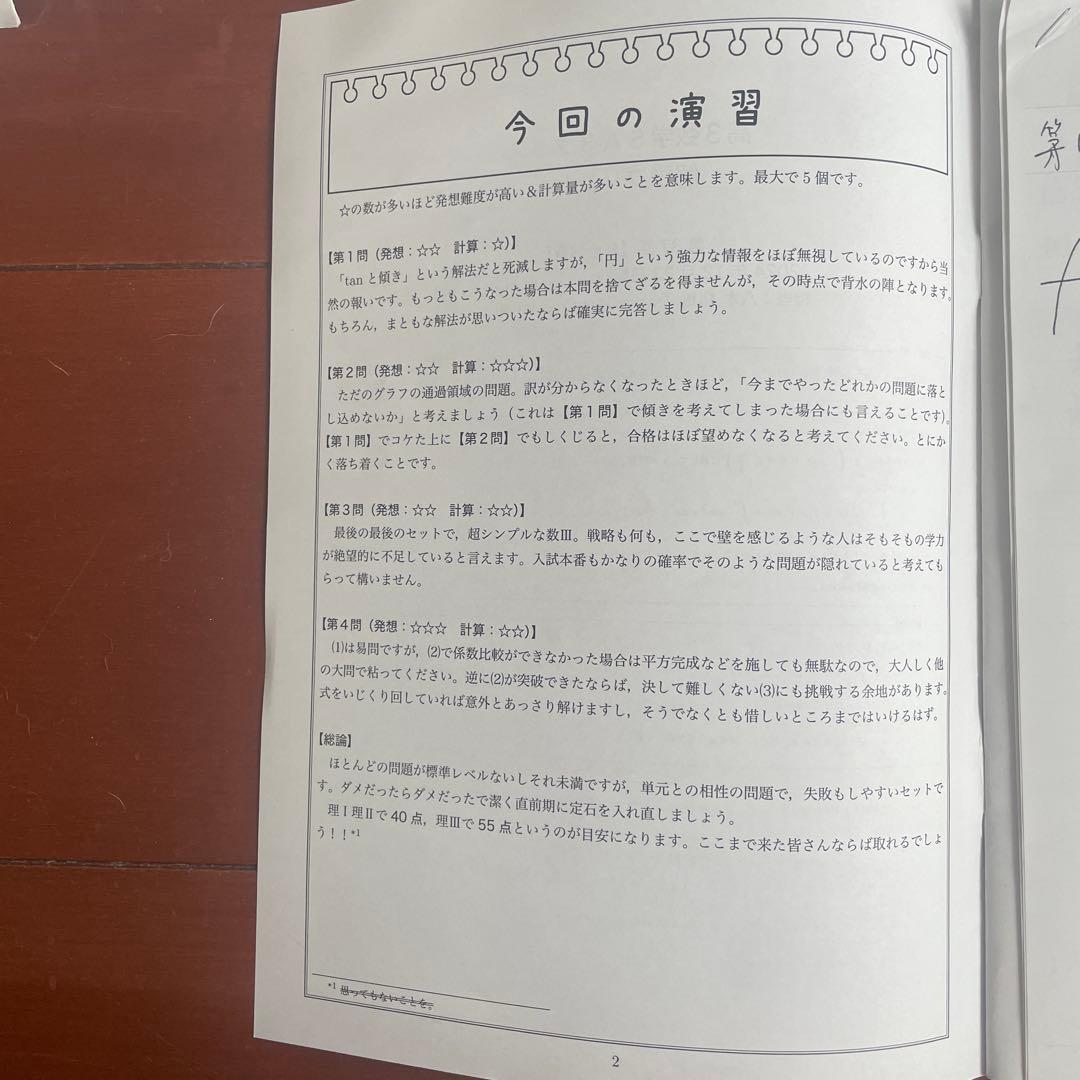 今回の演習
☆の数が多いほど発想難度が高い＆計算量が多いことを意味します。最大で5個です。
【第1問（発想：☆☆　計算：☆）】
「tanと傾き」という解法だと死滅しますが，「円」という強力な情報をほぼ無視しているのですから当
然の報いです。もっともこうなった場合は本問を捨てざるを得ませんが，その時点で背水の陣となります。
もちろん，まともな解法が思いついたならば確実に完答しましょう。
【第2問（発想：☆☆　計算：☆☆☆）】
ただのグラフの通過領域の問題。訳が分からなくなったときほど，「今までやったどれかの問題に落と
し込めないか」と考えましょう（これは【第1問】で傾きを考えてしまった場合にも言えることです）。
【第1問】でコケた上に【第2問】でもしくじると，合格はほぼ望めなくなると考えてください。とにか
く落ち着くことです。
【第3問（発想：☆☆　計算：☆☆）】
最後の最後のセットで，超シンプルな数Ⅲ。戦略も何も，ここで壁を感じるような人はそもそもの学力
が絶望的に不足していると言えます。入試本番もかなりの確率でそのような問題が隠れていると考えても
らって構いません。
【第4問（発想：☆☆☆　計算：☆☆）】
(1)は易問ですが，(2)で係数比較ができなかった場合は平方完成などを施しても無駄なので，大人しく他
の大問で粘ってください。逆に(2)が突破できたならば，決して難しくない(3)にも挑戦する余地があります。
式をいじくり回していれば意外とあっさり解けますし，そうでなくとも惜しいところまではいけるはず。
【総論】
ほとんどの問題が標準レベルないしそれ未満ですが，単元との相性の問題で，失敗もしやすいセットで
す。ダメだったらダメだったで潔く直前期に定石を入れ直しましょう。
理Ⅰ理Ⅱで40点，理Ⅲで55点というのが目安になります。ここまで来た皆さんならば取れるでしょ
う！！*1
*1 思ってもないことを。
2
第